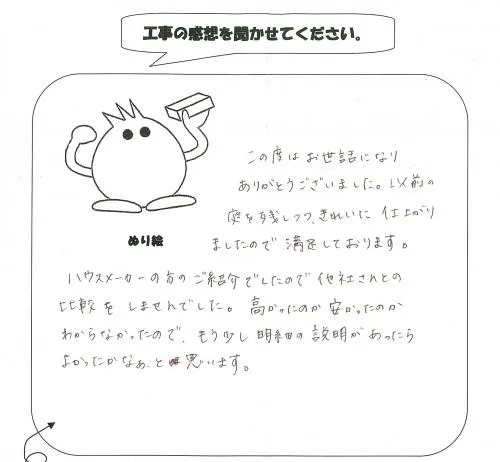 工事の感想を聞かせてください。
この度はお世話になり
ありがとうございました。以前の
庭を残しつつ、きれいに仕上がり
ましたので満足しております。
ぬり絵
ハウスメーカーの方のご紹介でしたので他社さんとの
比較をしませんでした。高かったのか安かったのか
わからなかったので、もう少し明細の説明があったら
よかったかなぁ、と思います。